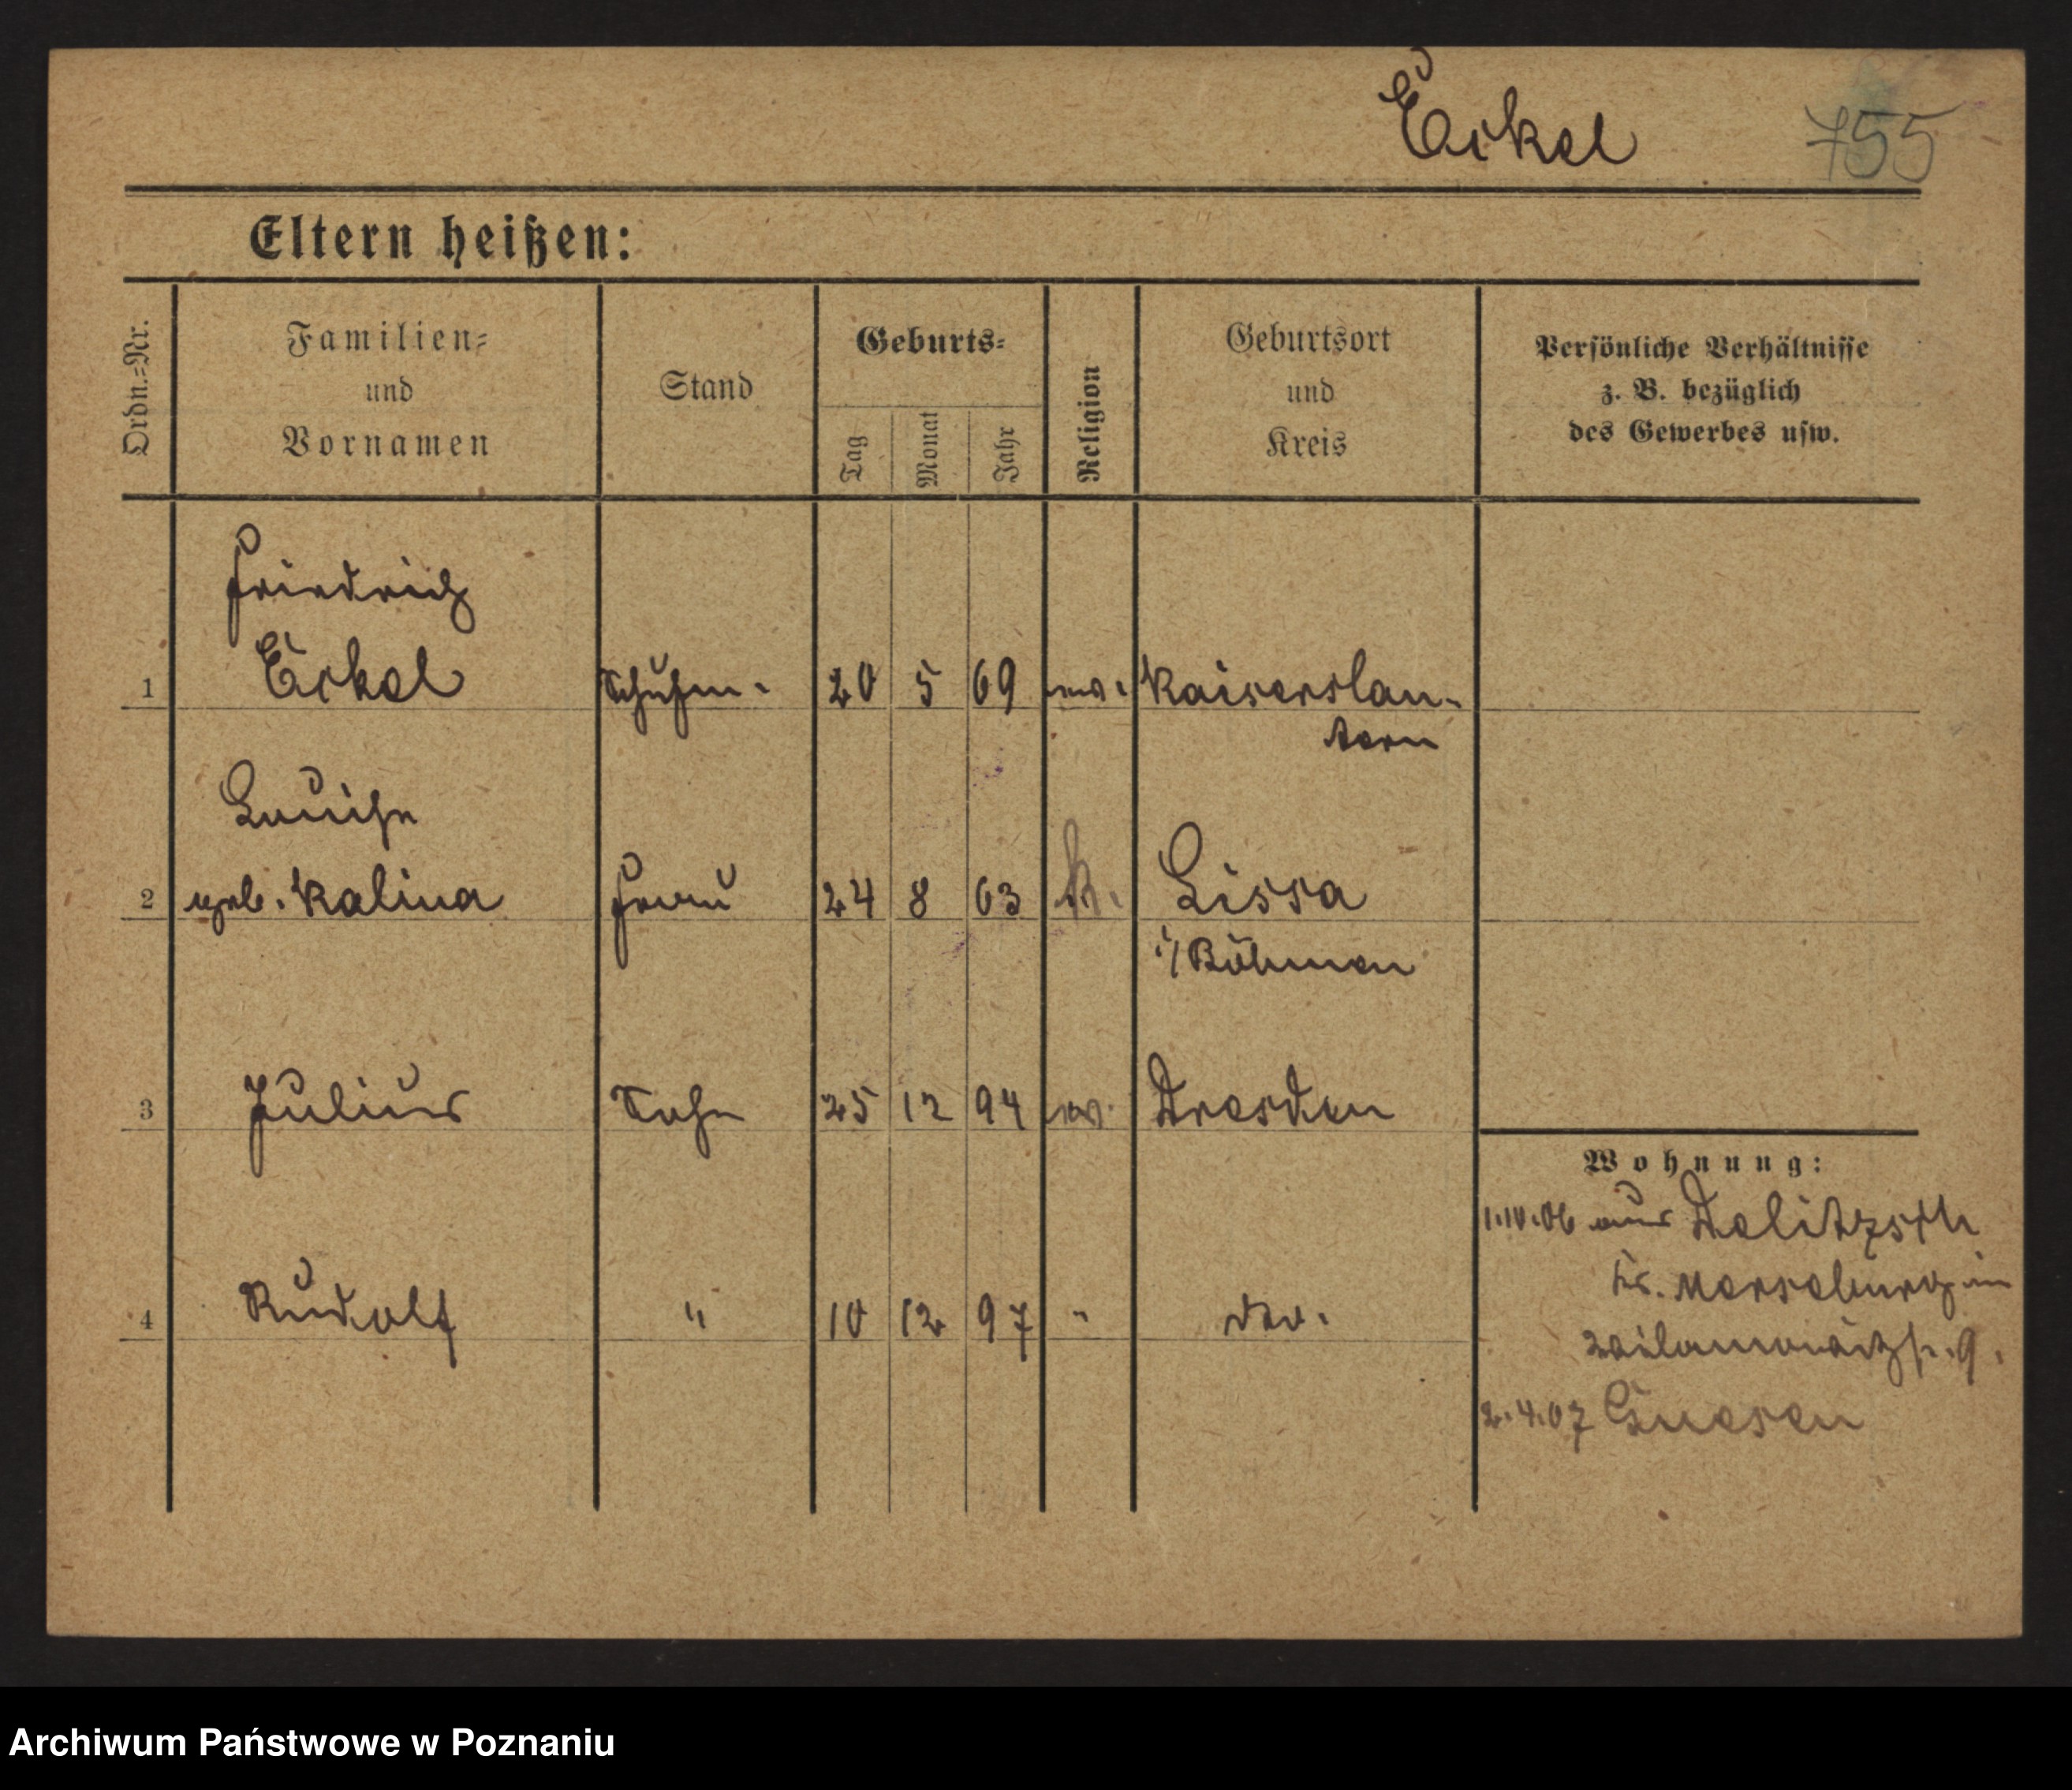 Eickel 755
Eltern heißen:
Ordn.=Nr.
Familien=
und
Vornamen
Stand
Geburts=
Tag
Monat
Jahr
Religion
Geburtsort
und
Kreis
Persönliche Verhältnisse
z. B. bezüglich
des Gewerbes usw.
Friedrich
1 Eickel Schuhm. 20 5 69 Kaiserslau-
tern
Louise
2 geb. Kalina Frau 24 8 63 k. Lissa
i/Böhmen
3 Julius Sohn 25 12 94 Dresden
Wohnung:
1.10.06 aus
Kr. Merseburg in
4 Rudolf " 10 12 97 " dto.
9.
2.4.07 Gnesen
Archiwum Państwowe w Poznaniu